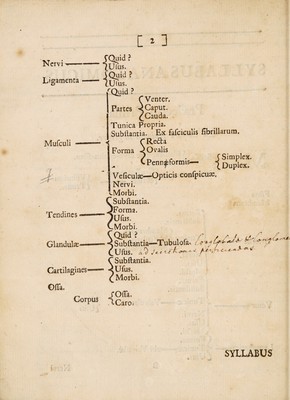 [ 2 ]
Nervi — { Quid ?
Usus.
Ligamenta — { Quid ?
Usus.
Musculi { Quid ?
Partes { Venter.
Caput.
Cauda.
Tunica Propria.
Substantia. Ex fasciculis fibrillarum.
Forma { Recta
Ovalis
Penniformis — { Simplex.
Duplex.
Vesiculæ — Opticis conspicuæ.
Nervi.
Morbi.
Tendines { Substantia.
Forma.
Usus.
Morbi.
Glandulæ { Quid ?
Substantia — Tubulosa.
Usus. ad secretiones
Cartilagines { Substantia.
Usus.
Morbi.
Ossa.
Corpus { Ossa.
Caro.
SYLLABUS